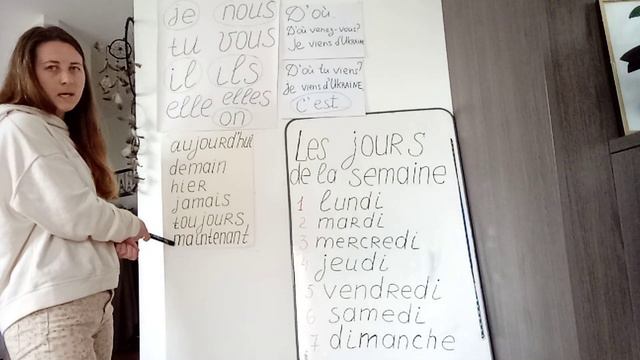 je nous
tu vous
il ils
elle elles
on
D'où
D'où venez-vous?
Je viens d'Ukraine
D'où tu viens?
Je viens d'UKRAINE
C'est
aujourd'hui
demain
hier
jamais
toujours
maintenant
Les jours
de la semaine
1 lundi
2 mardi
3 mercredi
4 jeudi
5 vendredi
6 samedi
7 dimanche